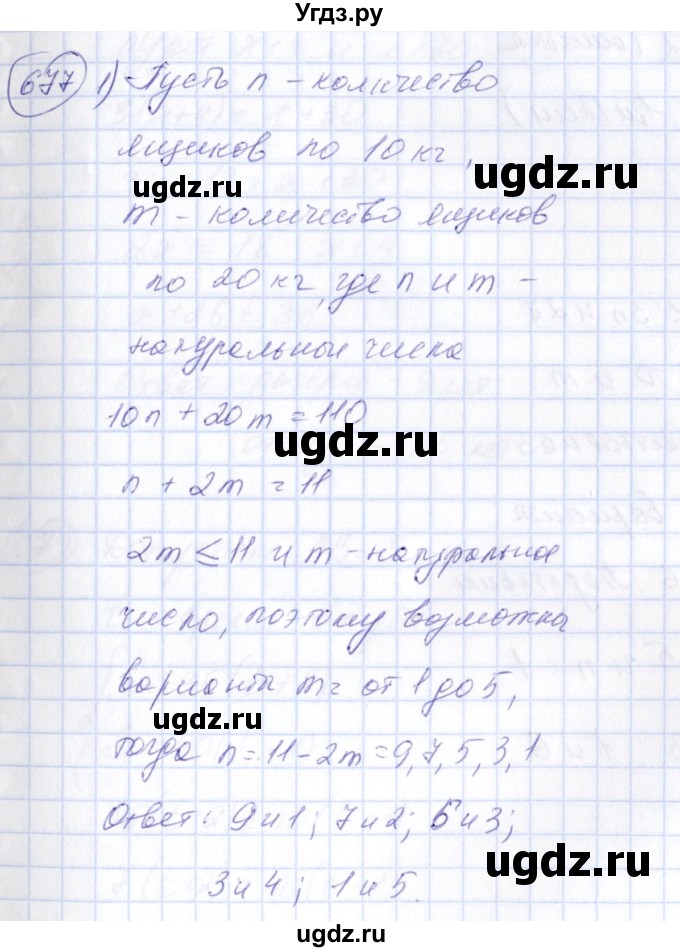 Угдз.ру
677 1) Пусть n - количество
ящиков по 10 кг,
udgz.ru
ugdz.ru
m - количество ящиков
по 20 кг, где n и m -
натуральные числа
10n + 20m = 110
ugdz.ru
n + 2m = 11
2m ≤ 11 и m - натуральное
ugdz.ru
число, поэтому возможна
варианты m = от 1 до 5,
ugdz.ru
тогда n = 11 - 2m = 9, 7, 5, 3, 1
Ответ: 9 и 1; 7 и 2; 5 и 3;
ugdz.ru
ugdz.ru
3 и 4; 1 и 5.